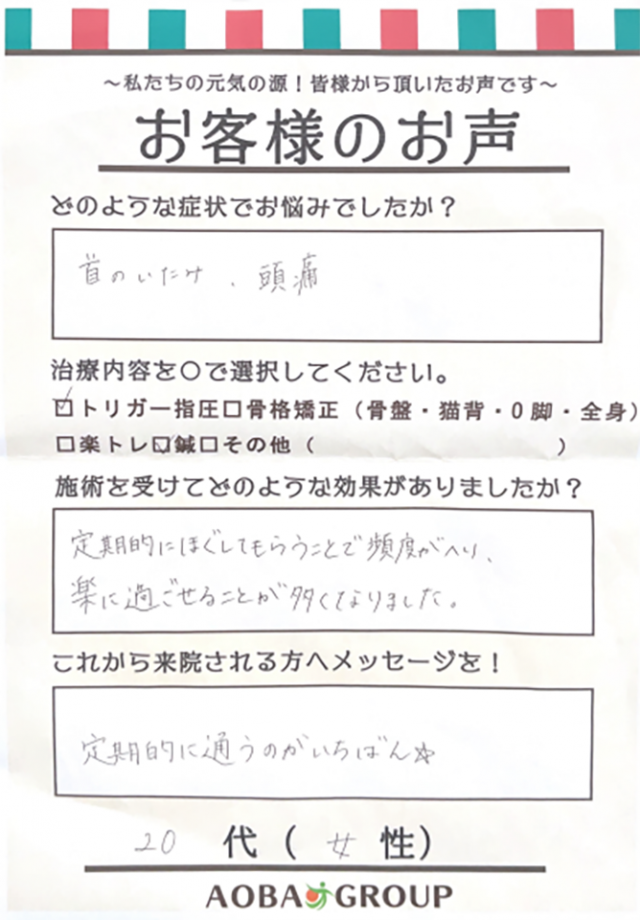 ～私たちの元気の源！皆様から頂いたお声です～
お客様のお声
どのような症状でお悩みでしたか？
首のいたみ、頭痛
治療内容を〇で選択してください。
☑トリガー指圧□骨格矯正（骨盤・猫背・O脚・全身）
□楽トレ☑鍼□その他（　　　　　）
施術を受けてどのような効果がありましたか？
定期的にほぐしてもらうことで頻度がへり、
楽に過ごせることが多くなりました。
これから来院される方へメッセージを！
定期的に通うのがいちばん☆
20代（女性）
AOBA GROUP